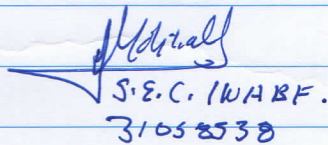 S.E.C. IWABF.
31058538